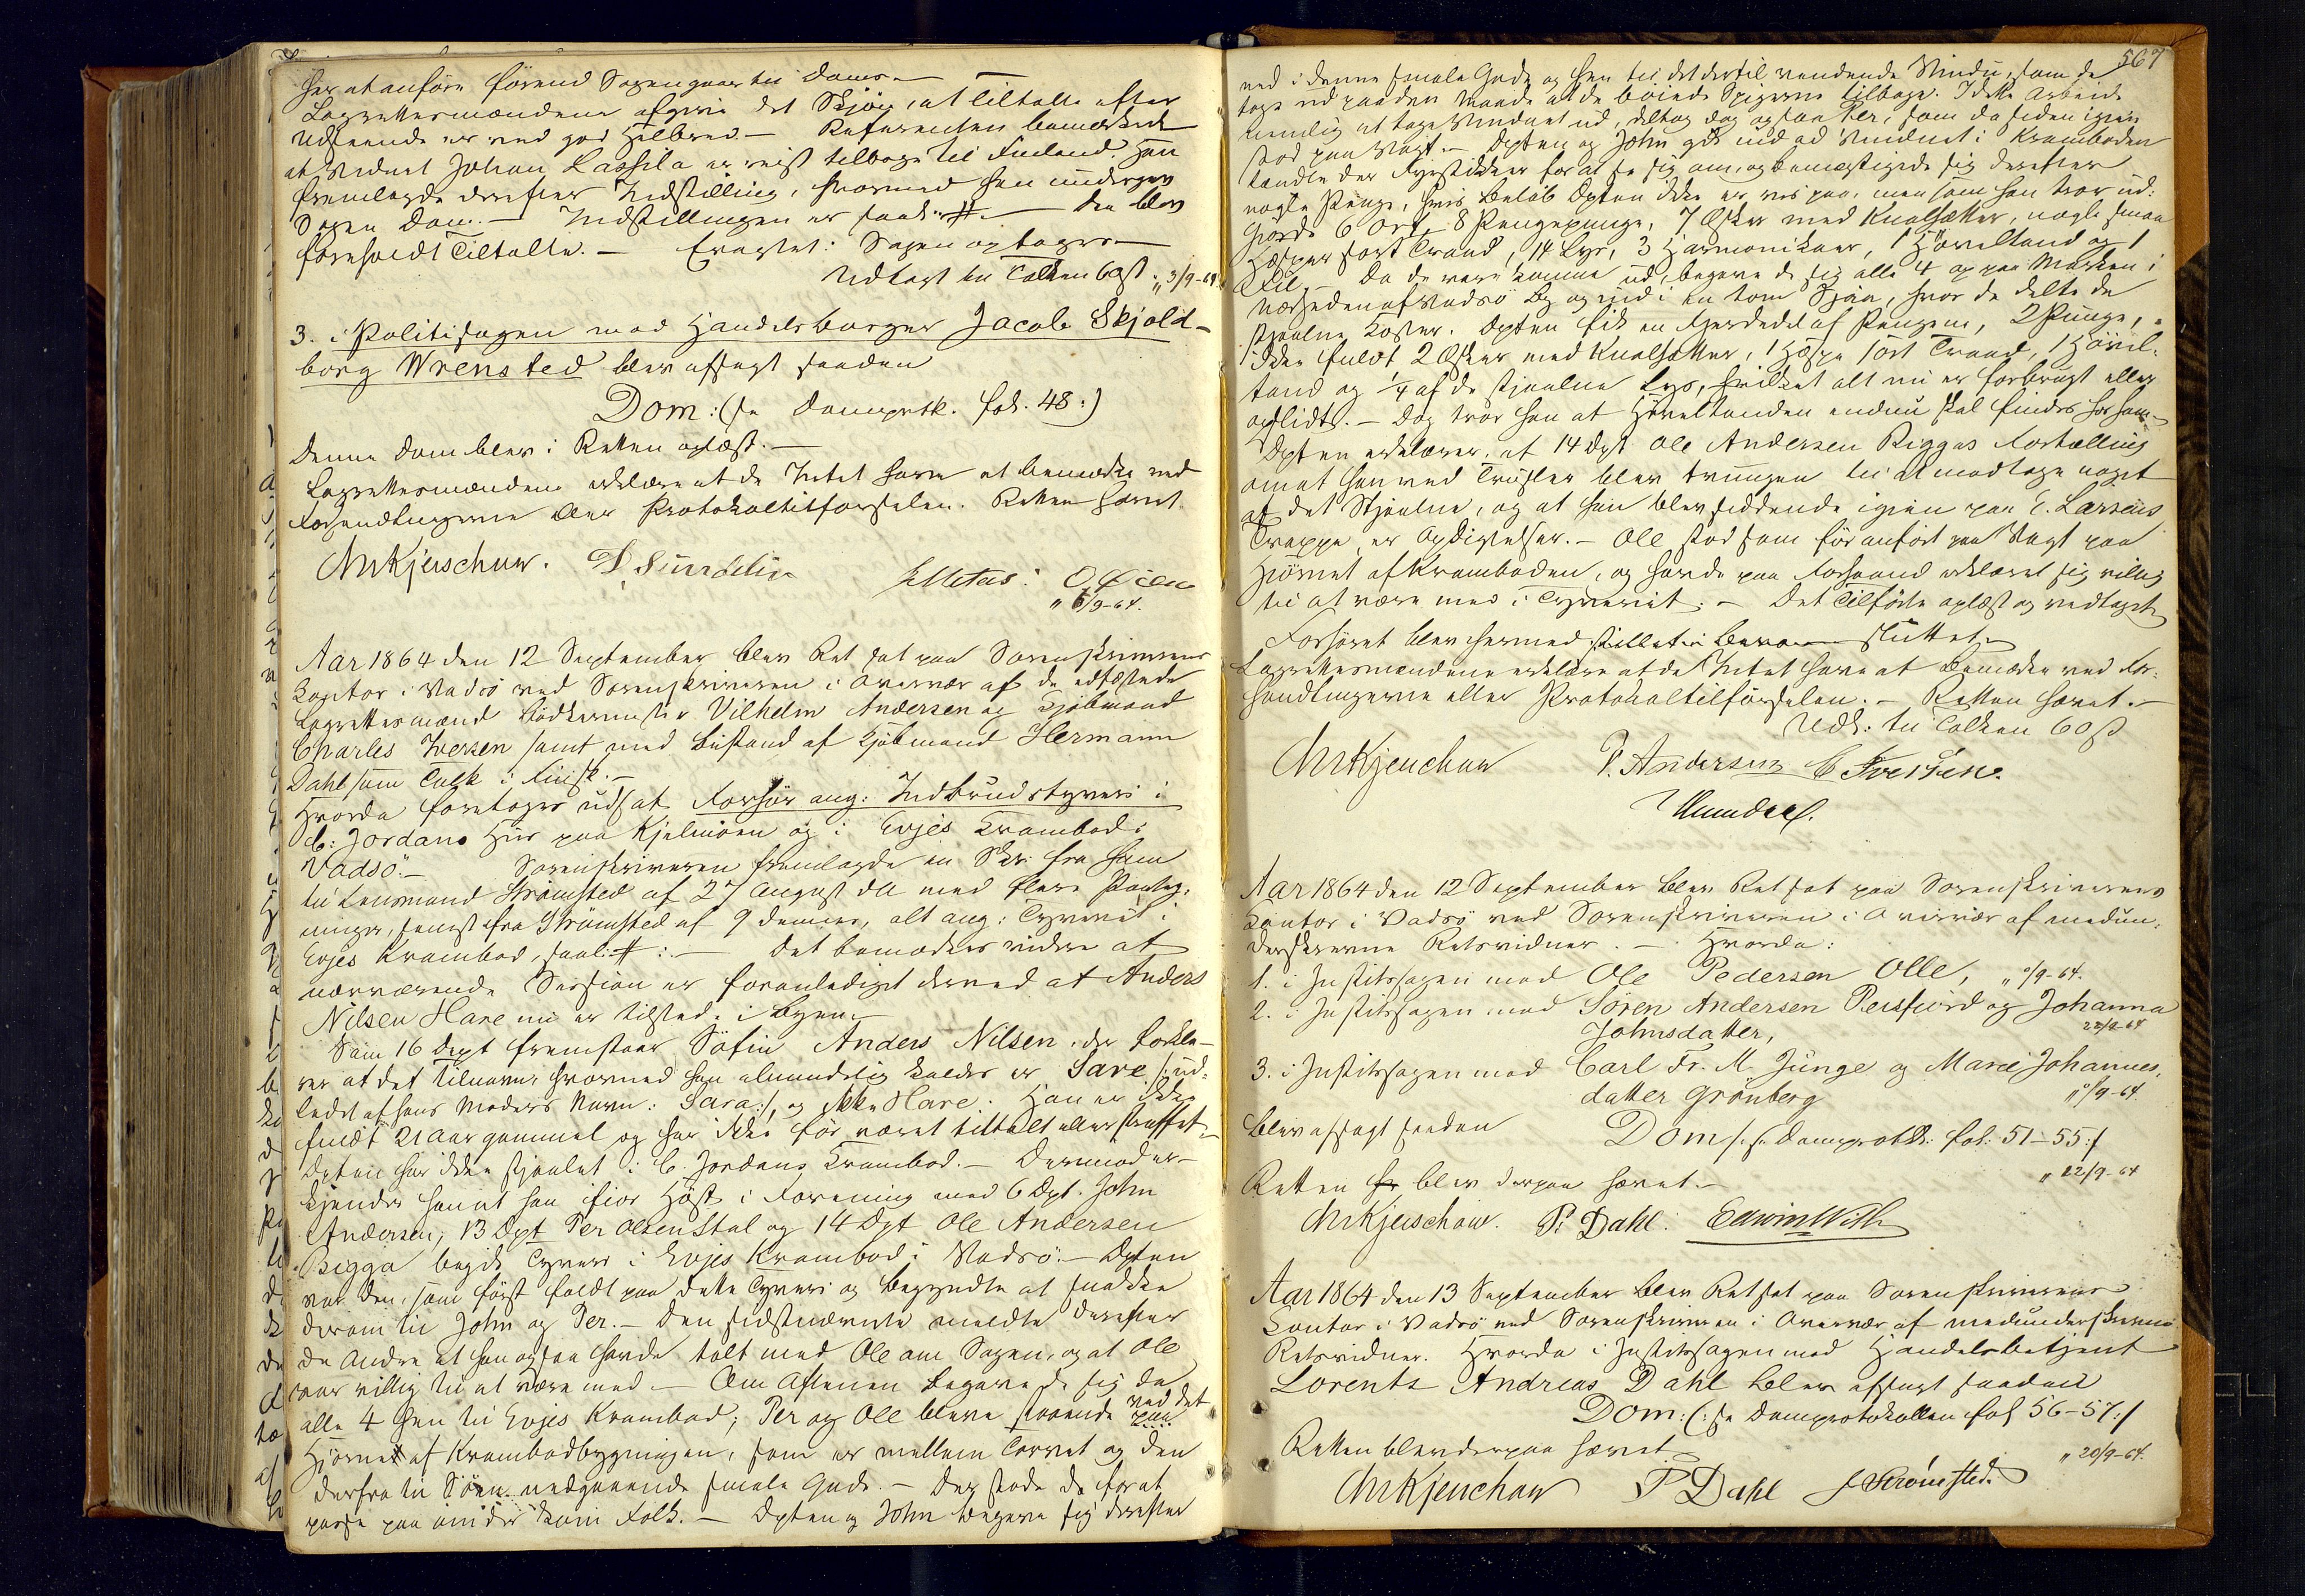 har at anføre førend Sagen gaar til Doms. —
Lagrettesmændene afgive det Skjøn, at Tiltalte efter
Udseende er ved god Helbred. — Referenten bemærkede
at Vidnet Johan Lassila er reist tilbage til Finland. Han
fremlagde derefter Indstilling, hvormed han undergav
Sagen Dom. — Indstillingen er saal: # — Den blev
foreholdt Tiltalte. — Eragtet: Sagen optages. —
Udlagt til Tolken 60 ß. „ 3/9-64.
3. i Politisagen mod Handelsborger Jacob Skjold-
borg Wrensted blev afsagt saadan
Dom: (se Domprotk. fol. 48:)
Denne Dom blev i Retten oplæst. —
Lagrettesmændene erklære at de Intet have at bemærke ved
Forhandlingerne eller Protokoltilførselen. Retten hævet.
ChrKjerschow.
„ 6/9-64.
Aar 1864 den 12 September blev Ret sat paa Sorenskriverens
Contor i Vadsö ved Sorenskriveren i Overvær af de edfæstede
Lagrettesmænd Bödkermester Vilhelm Andersen og Kjöbmand
Charles Iversen samt med Bistand af Kjöbmand Hermann
Dahl som Tolk i Finsk. —
Hvorda foretoges udsat Forhør ang: Indbrudstyveri i
C: Jordans Hus paa Kjelmöen og i Evjes Krambod i
Vadsö. — Sorenskriveren fremlagde en Skr. fra ham
til Lensmand Strömsted af 27 August da med flere Paateg-
ninger, senest fra Strömsted af 9 dennes, alt ang: Tyveriet i
Evjes Krambod, saal: # : — Det bemærkes videre at
nærværende Session er foranlediget derved at Anders
Nilsen Hare nu er tilstede i Byen. —
Som 16 Dept fremstaar Söfin Anders Nilsen, der forkla-
rer at det Tilnavn, hvormed han almindelig kaldes er Sare /: ud-
ledet af hans Moders Navn: Sara :/, og ikke Hare. Han er ikke
fuldt 21 Aar gammel og har ikke før været tiltalt eller straffet. —
Dpten har ikke stjaalet i C. Jordans Krambod. — Derimod er-
kjender han at han ifior Höst i Forening med 6 Dpt. John
Andersen, 13 Dpt Per Olsen Stal og 14 Dpt Ole Andersen
Bigga begik Tyveri i Evjes Krambod i Vadsö. — Dpten
var den, som først faldt paa dette Tyveri og begyndte at snakke
derom til John og Per. — Den sidstnævnte meldte derefter
de Andre at han ogsaa havde talt med Ole om Sagen, og at Ole
var villig til at være med. — Om Aftenen begave de sig da
alle 4 hen til Evjes Krambod; Per og Ole bleve staaende ved det
Hjørne af Krambodbygningen, som er mellem Torvet og den
derfra til Søen nedgaaende smale Gade. — Der stode de for at
passe paa om der kom Folk. — Dpten og John begave sig derefter
567
ned i denne smale Gade og hen til det dertil vendende Vindu, som de
toge ud paa den Maade at de böiede Spigerne tilbage. I dette Arbeide
nemlig at tage Vinduet ud, deltog dog ogsaa Per, som da siden igien
stod paa Vagt. — Dpten og John gik ind ad Vinduet i Kramboden
tændte der Fyrstikker for at se sig om, og bemægtigede sig derefter
nogle Penge, hvis Beløb Dpten ikke er vis paa, men som han tror ud-
gjorde 6 Ort, 8 Pengepunge, 7 Æsker med Knalhætter, nogle smaa
Hesper sort Traad, 14 Lys, 3 Harmonikaer, 1 Høveltand og 1
Fiil. — Da de vare komne ud, begave de sig alle 4 op paa Marken i
Nærheden af Vadsö By og ind i en tom Sjaa, hvor de delte de
stjaalne Koster. Dpten fik en Fjerdedel af Pengene, 2 Punge,
ikke fuldt 2 Æsker med Knalhætter, 1 Hespe sort Traad, 1 Hövel-
tand og 1/4 af de stjaalne Lys, hvilket alt nu er forbrugt eller
opslidt. — Dog tror han at Høveltanden endnu skal findes hos ham. —
Dpten erklærer, at 14 Dpt Ole Andersen Biggas Fortælling
om at han ved Trusler blev tvungen til at modtage noget
af det Stjaalne, og at han blev siddende igien paa E. Larsens
Trappe, er Opdigtelser. — Ole stod som før anført paa Vagt paa
Hjørnet af Kramboden, og havde paa Forhaand erklæret sig villig
til at være med i Tyveriet. — Det Tilførte oplæst og vedtaget.
Forhøret blev hermed sluttet.
Lagrettesmændene erklære at de Intet have at bemærke ved For-
handlingerne eller Protokoltilførselen. — Retten hævet. —
Udl: til Tolken 60 ß
ChrKjerschow V. Andersen C Iversen.
Aar 1864 den 12 September blev Ret sat paa Sorenskriverens
Contor i Vadsö ved Sorenskriveren i Overvær af medun-
derskrevne Retsvidner. — Hvorda:
1. i Justitssagen mod Ole Pedersen Olle,
2. i Justitssagen mod Sören Andersen Persfiord og Johanna
Johnsdatter,
3. i Justitssagen mod Carl Fr. M. Junge og Maree Johannes-
datter Grönberg
blev afsagt saadan Dom /: se Domprotk: fol: 51-55 :/
Retten blev derpaa hævet. — „ 22/9-64
ChrKjerschow. P. Dahl. Edwin With
Aar 1864 den 13 September blev Ret sat paa Sorenskriverens
Contor i Vadsö ved Sorenskriveren i Overvær af medunderskrevne
Retsvidner. Hvorda i Justitssagen mod Handelsbetjent
Lorentz Andreas Dahl blev afsagt saadan
Dom: (: se Domprotokollen fol 56-57 :/
Retten blev derpaa hævet. „ 20/9-64.
ChrKjerschow P Dahl Strömsted.